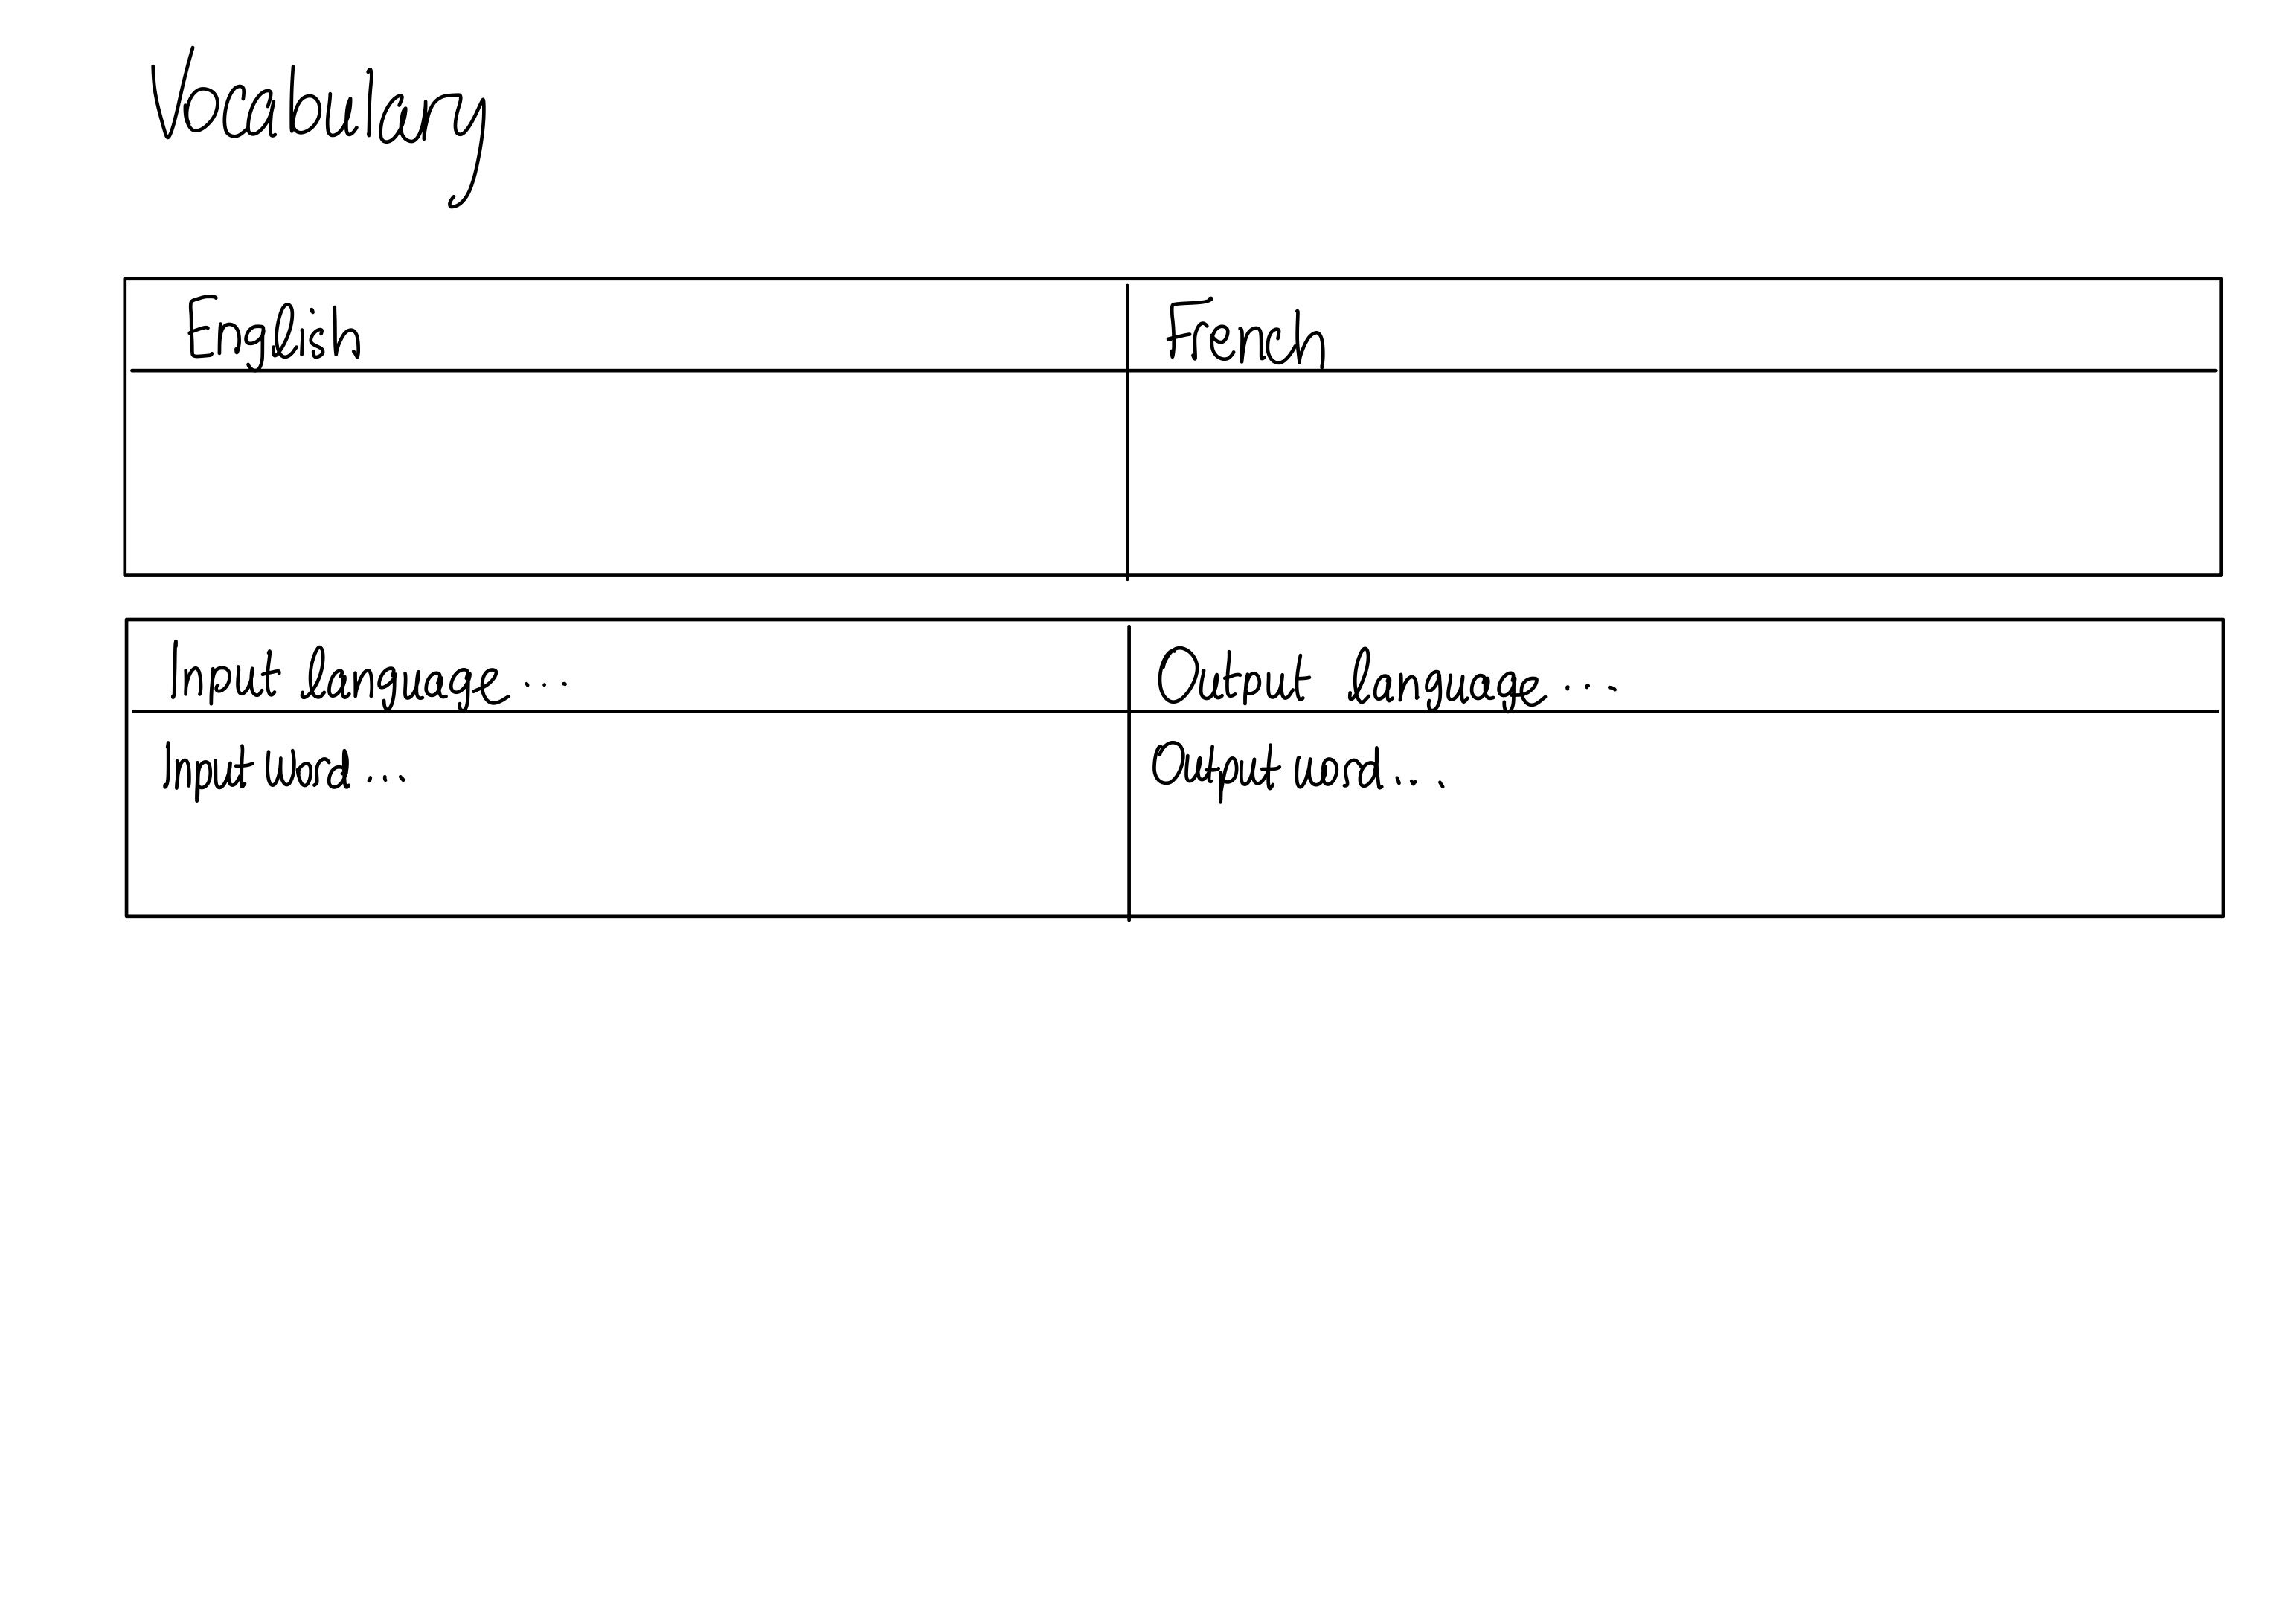 Vocabulary
English
French
Input language...
Output language...
Input word...
Output word...